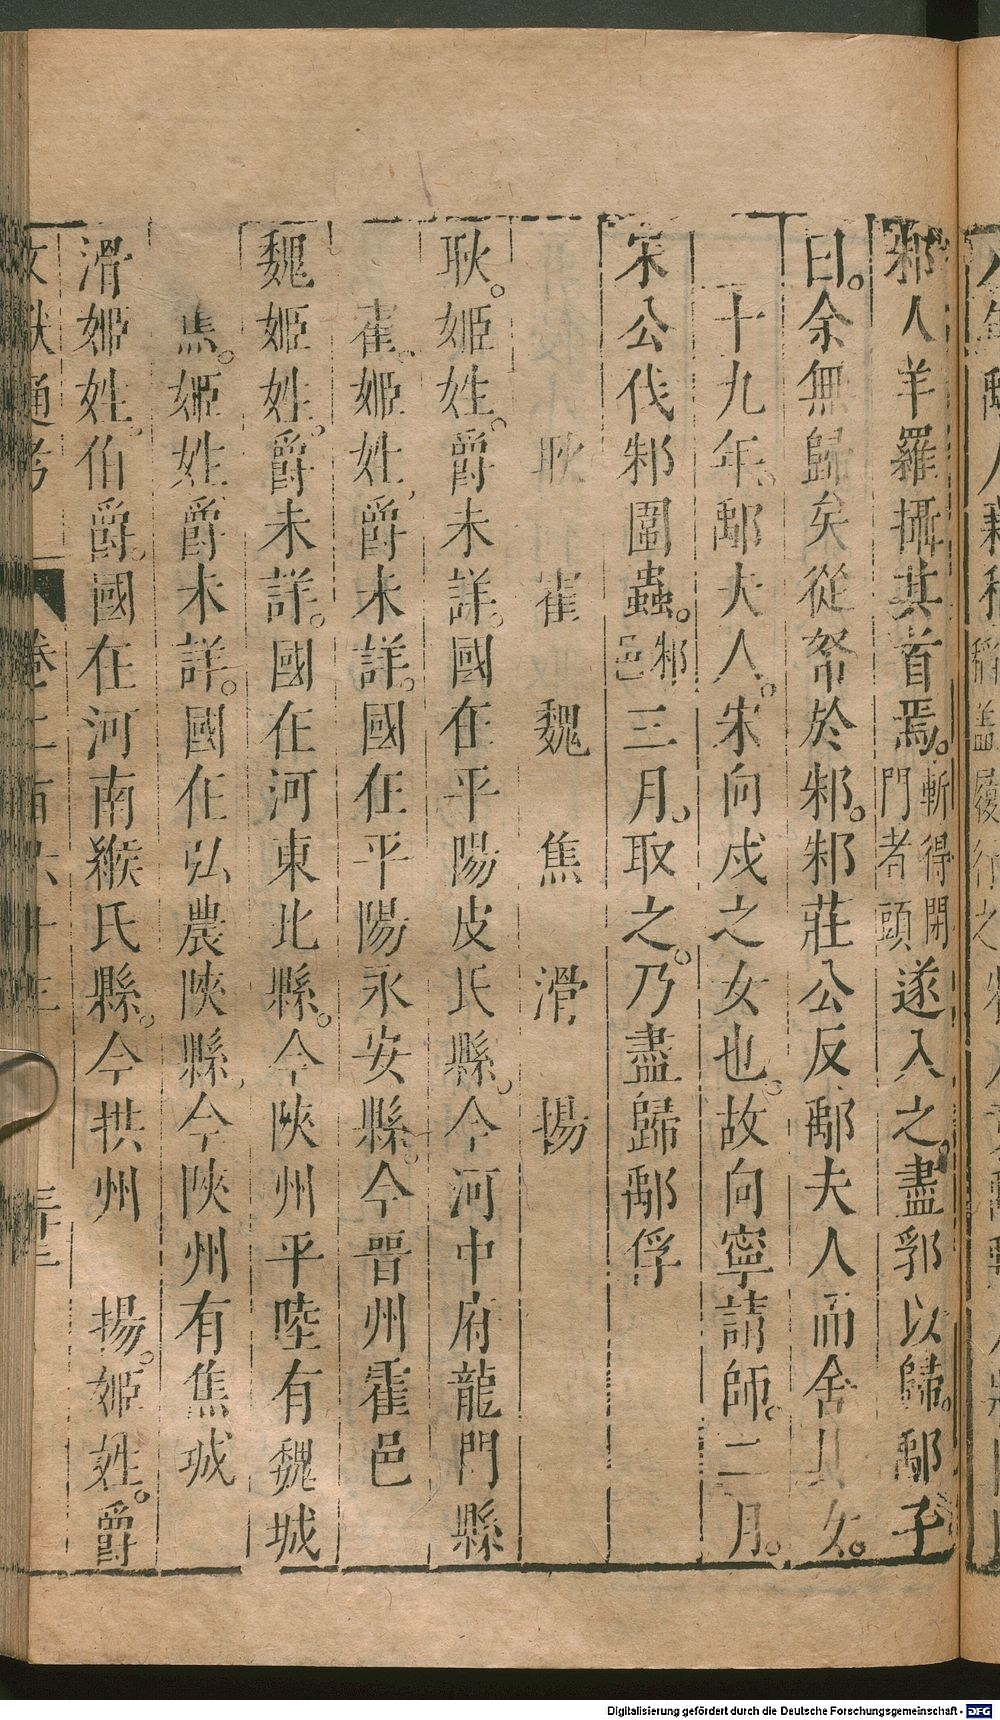 邾人羊羅攝其首焉。斬得閉門者頭遂入之。盡郛以歸。鄅子
曰。余無歸矣從帑於邾。邾莊公反鄅夫人而舍其女。
十九年。鄅夫人。宋向戍之女也。故向寧請師。二月。
宋公伐邾圍蟲。邾邑三月。取之。乃盡歸鄅俘
耿 崔 魏 焦 滑 揚
耿。姬姓。爵未詳。國在平陽皮氏縣。今河中府龍門縣
崔。姬姓。爵未詳。國在平陽永安縣。今晉州霍邑
魏姬姓。爵未詳。國在河東北縣。今陝州平陸有魏城
焦。姬姓爵未詳。國在弘農陝縣。今陝州有焦城
滑姬姓。伯爵。國在河南緱氏縣。今拱州 揚。姬姓。爵
文獻通考 卷二百六十三
Digitalisierung gefördert durch die Deutsche Forschungsgemeinschaft - DFG